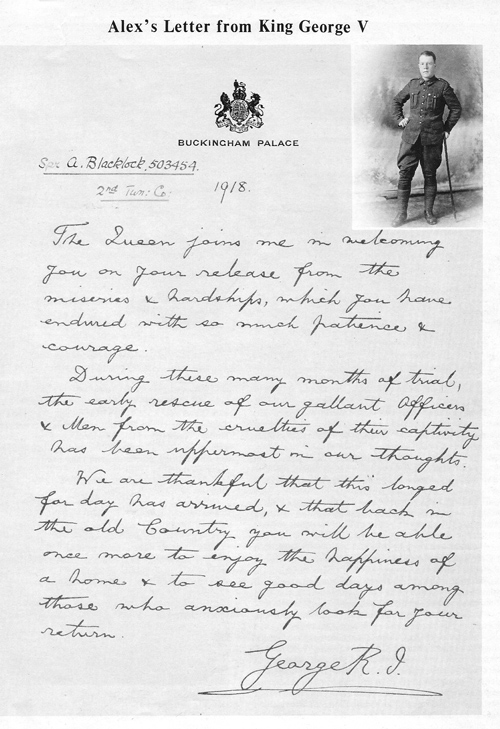 Alex's Letter from King George V
BUCKINGHAM PALACE
Spr. A. Blacklock, 503454.
2nd Tun: Co:
1918.
The Queen joins me in welcoming
you on your release from the
miseries & hardships, which you have
endured with so much patience &
courage.
During these many months of trial,
the early rescue of our gallant Officers
& Men from the cruelties of their captivity
has been uppermost in our thoughts.
We are thankful that this longed
for day has arrived, & that back in
the old Country you will be able
once more to enjoy the happiness of
a home & to see good days among
those who anxiously look for your
return.
George R.I.